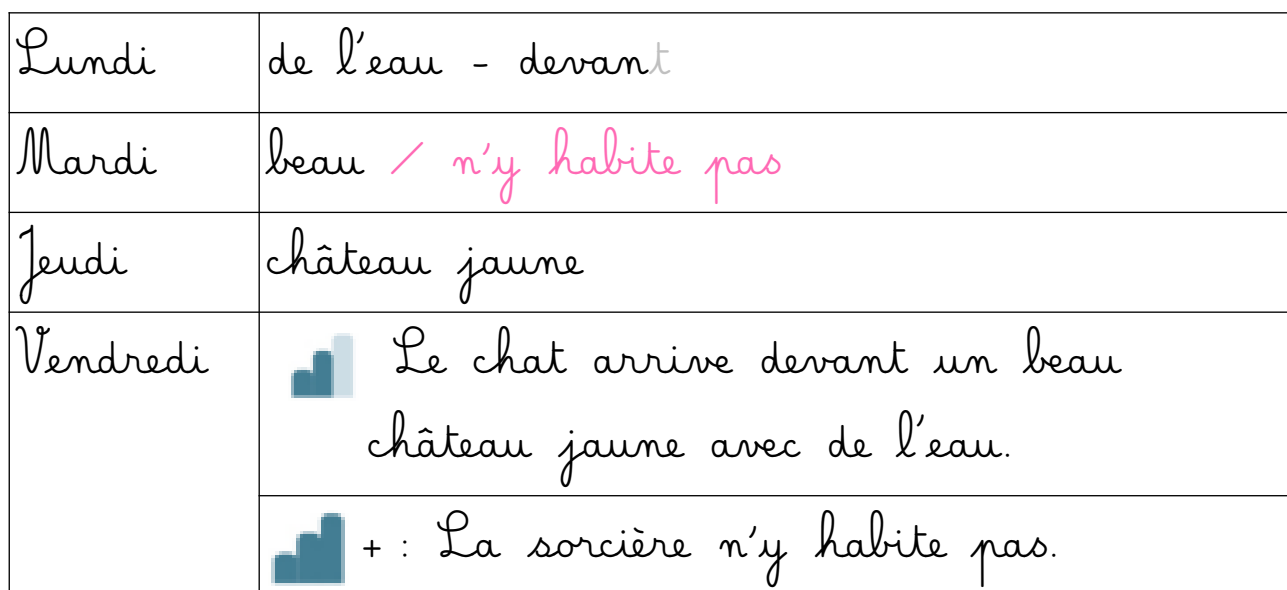 Lundi de l'eau - devant
Mardi beau / n'y habite pas
Jeudi château jaune
Vendredi Le chat arrive devant un beau
château jaune avec de l'eau.
+ : La sorcière n'y habite pas.